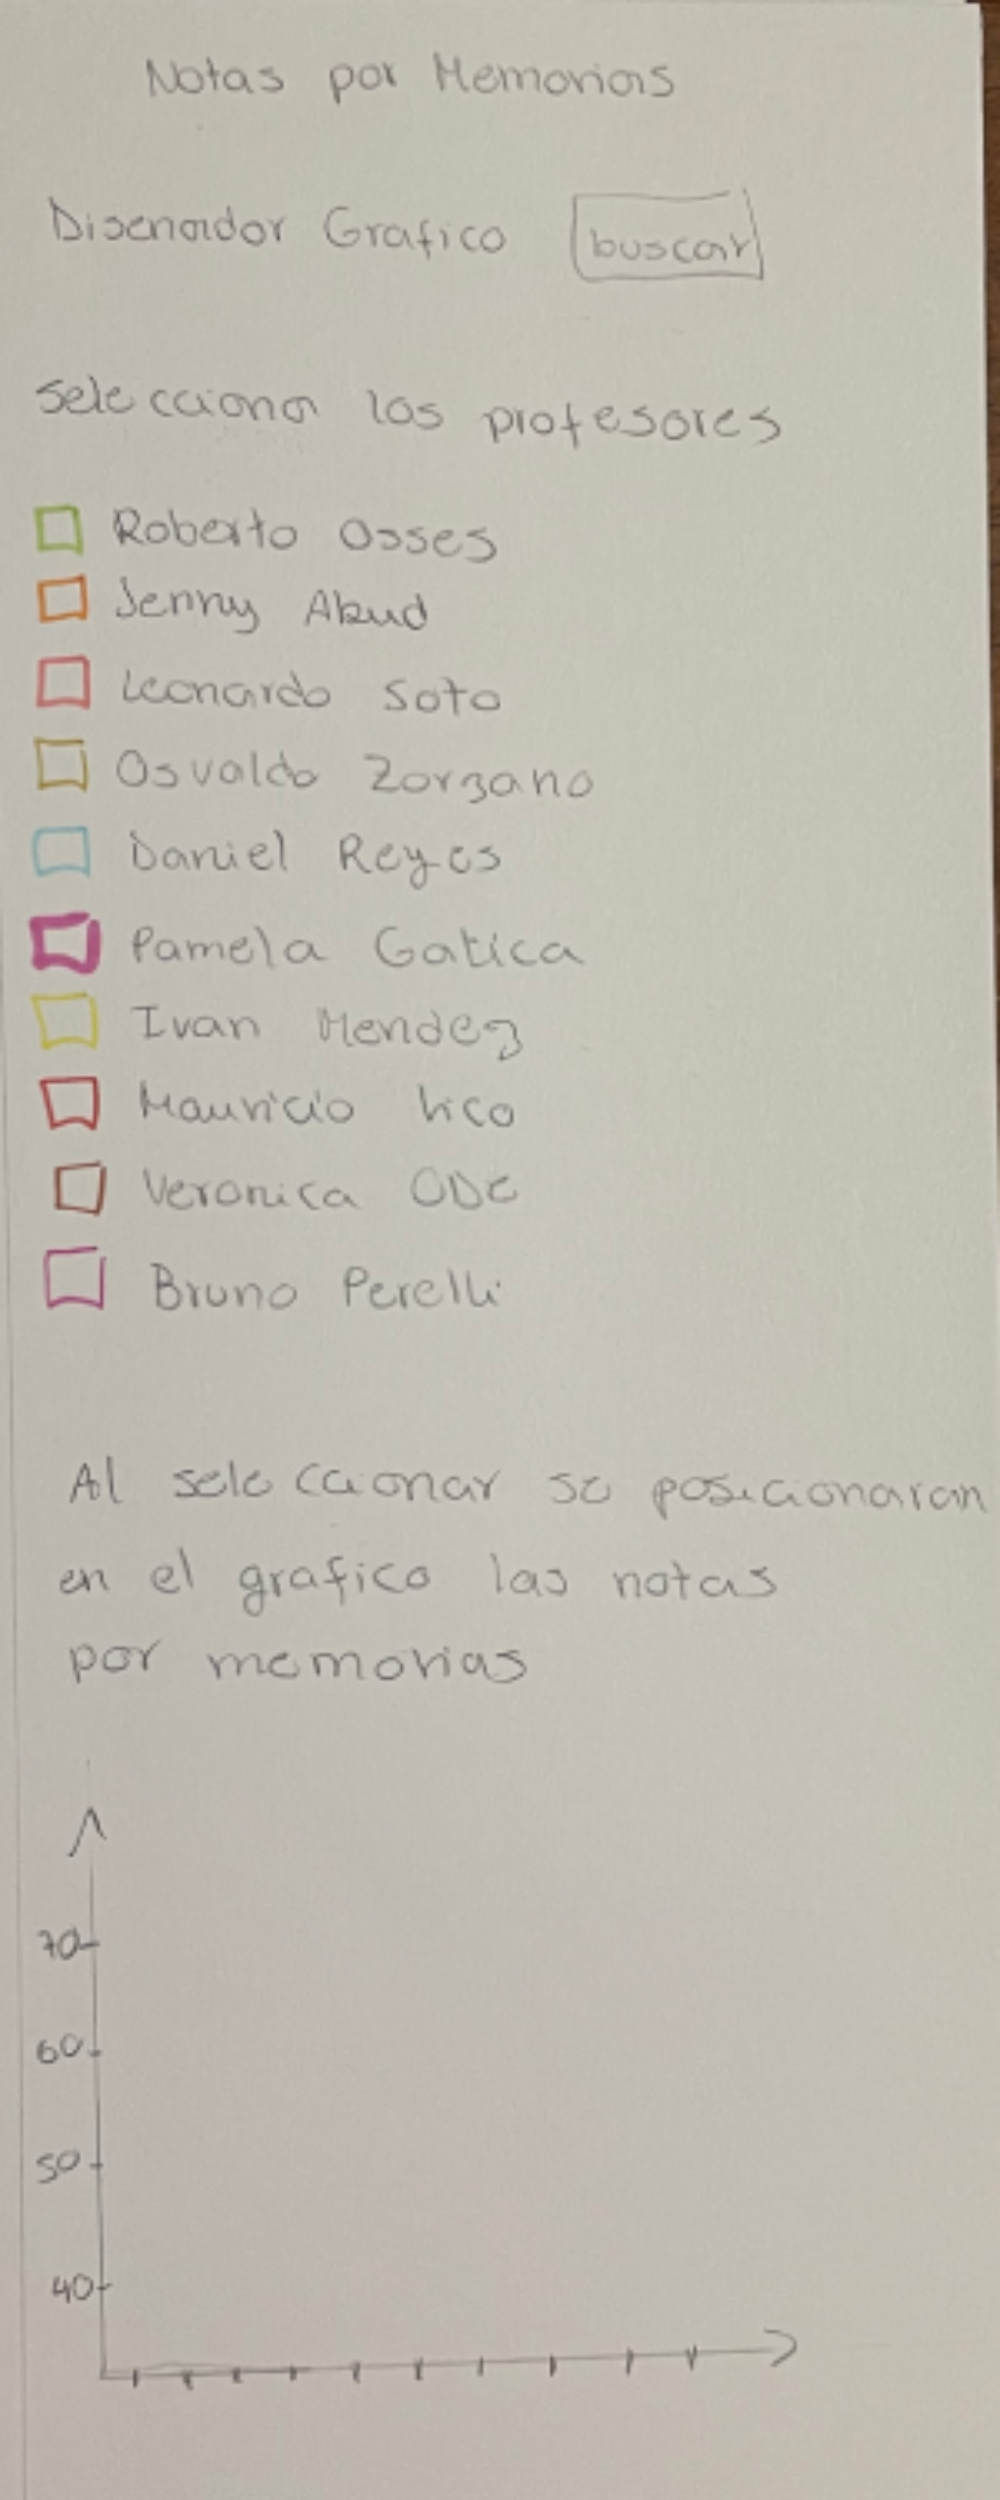 Notas por Memorias
Disenador Grafico buscar
Selecciona los profesores
Roberto Osses
Jenny Abud
Leonardo Soto
Osvaldo Zorzano
Daniel Reyes
Pamela Gatica
Ivan Mendez
Mauricio Vico
Veronica ODe
Bruno Perelli
Al seleccionar se posicionaran
en el grafico las notas
por memorias
70
60
50
40